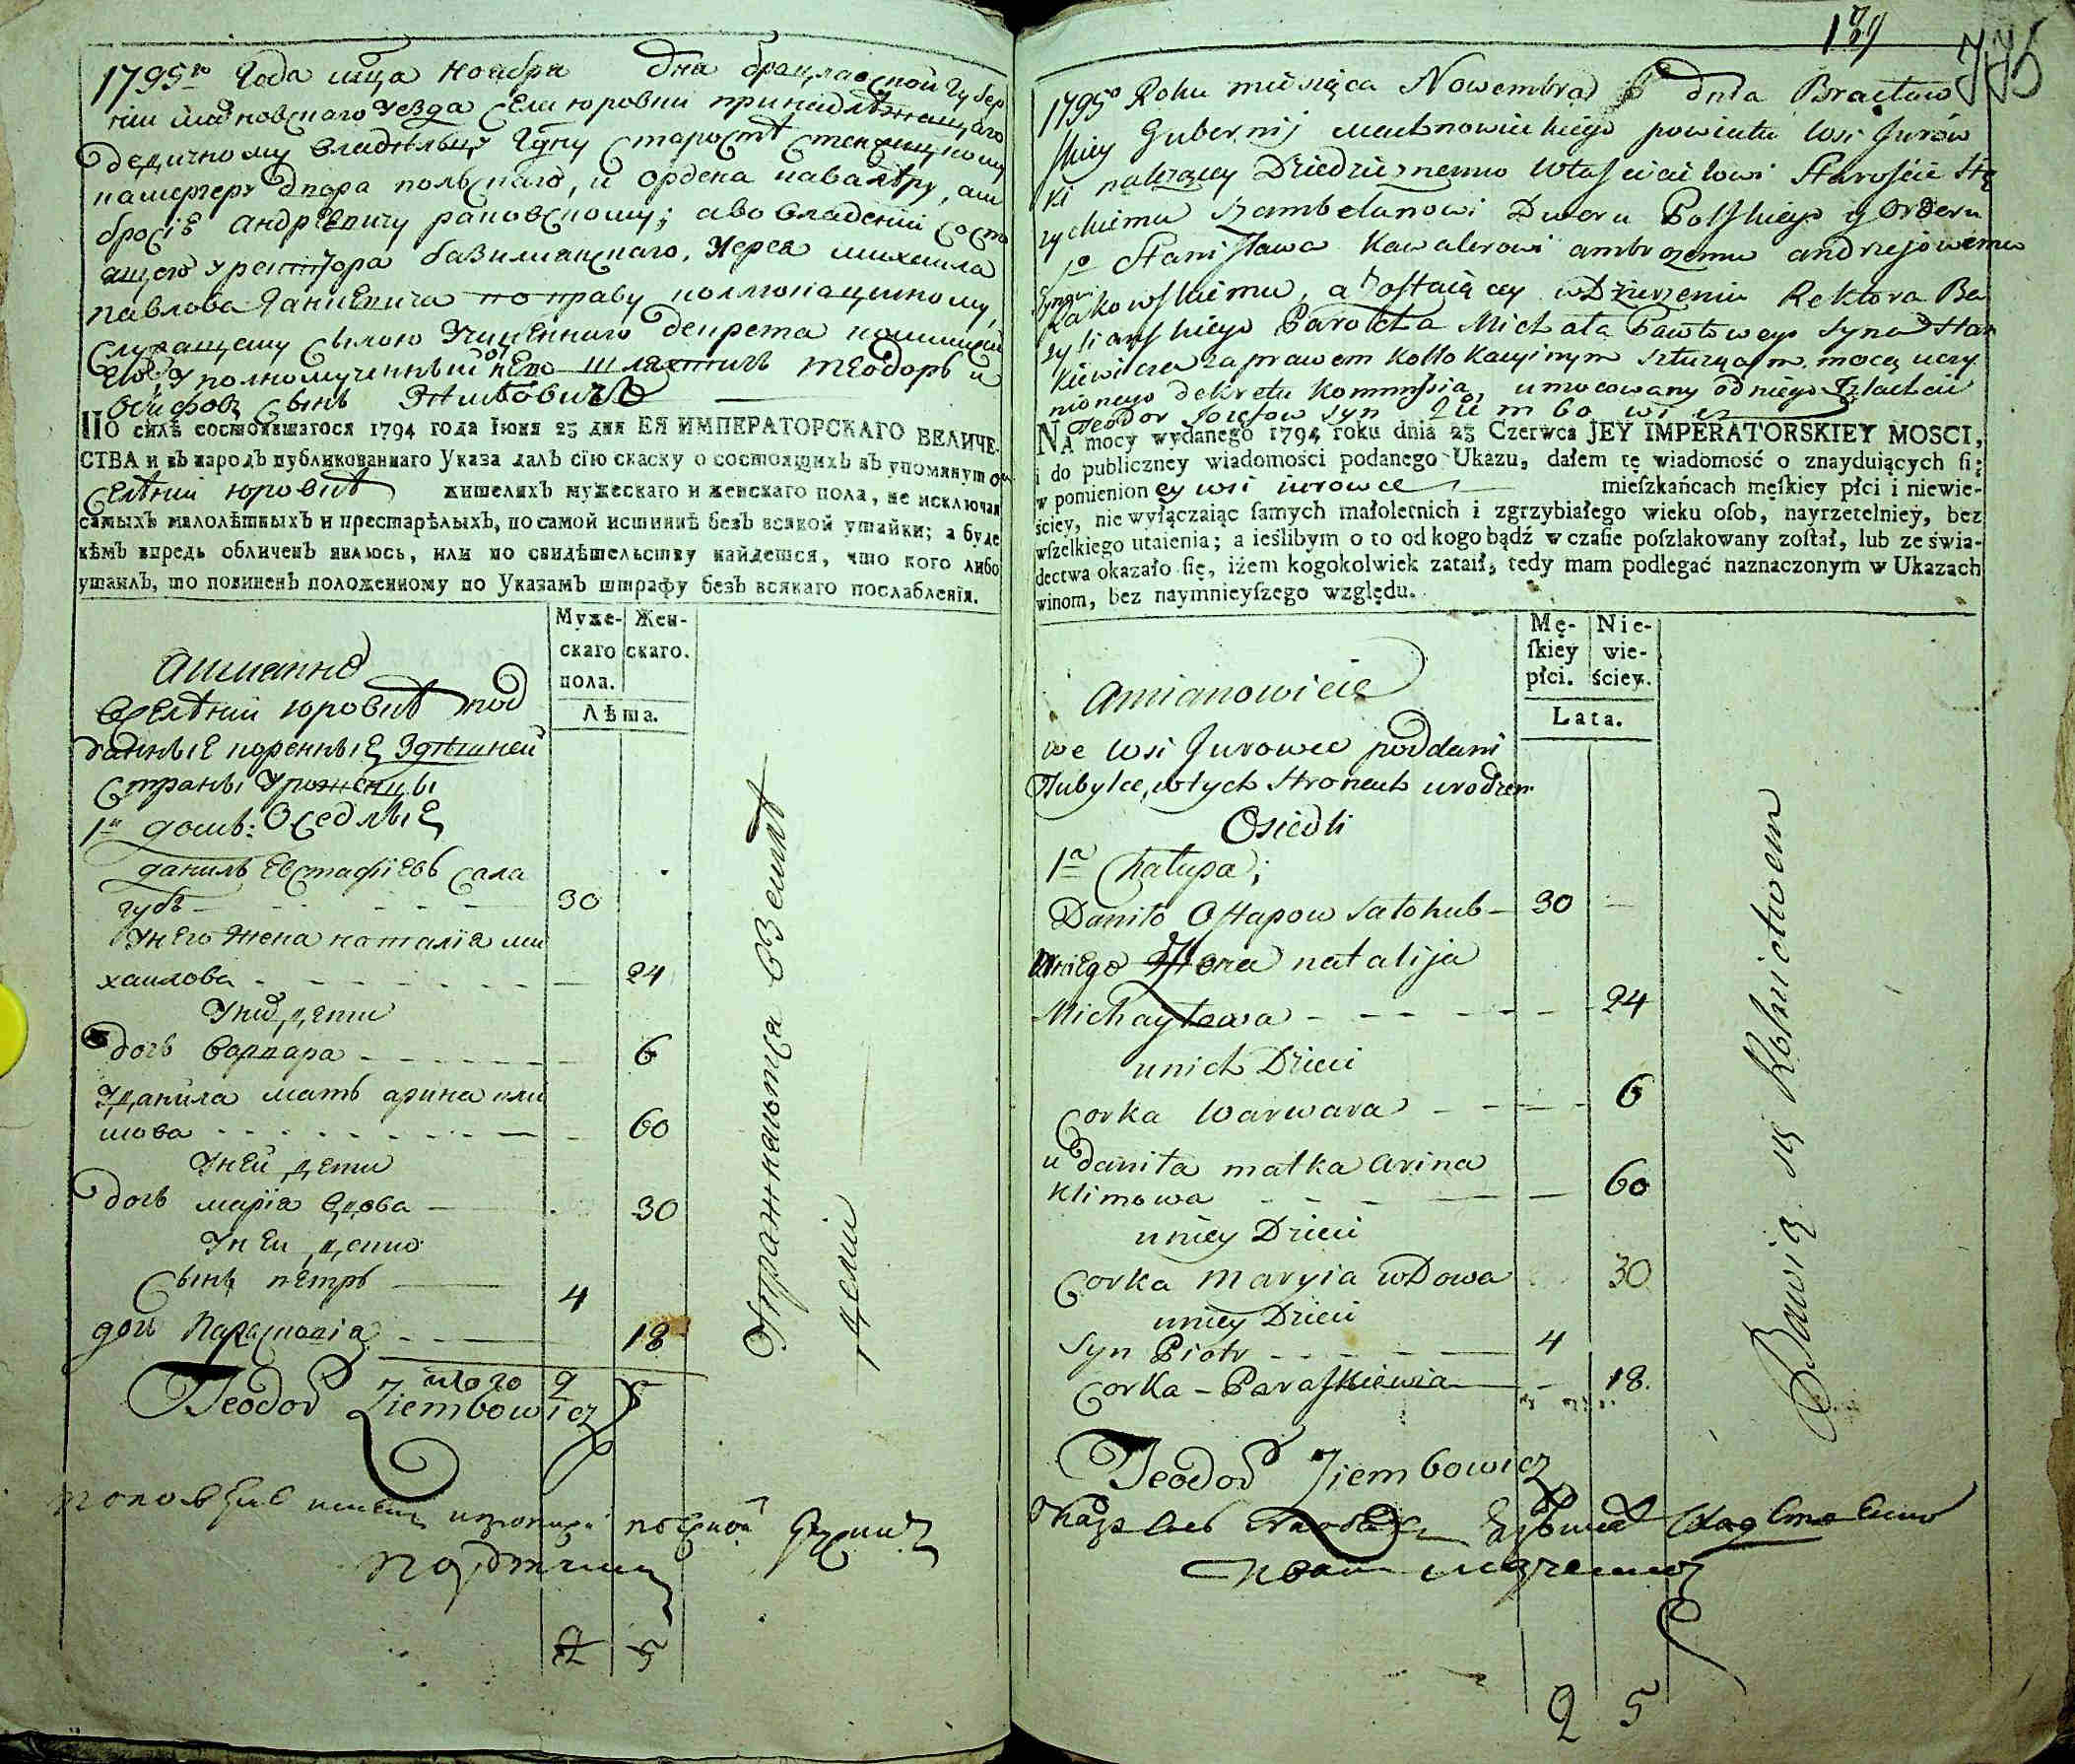 1795го Года мца Ноября дня брацлавской Губер
ніи махновскаго Уезда Селиюровки принадлежащаго
дедичному владѣльцу Гдну Старостѣ Стенжицкому
камергеру двора польскаго, и Ордена кавалѣру, ам
бросіѣ Андрѣевичу раковскому; аво владеніи состо
ящего Уректора базилианскаго, Иерея михаила
павлова Ганкевича по праву коллокацииному,
Служащему Силою Учиненнаго декрета комиссіи
Его Уполномученный шляхтичь Теодоръ и
Осифовъ Сынъ Зимбовичъ
ПО силѣ состоявшагося 1794 года Іюня 23 дня ЕЯ ИМПЕРАТОРСКАГО ВЕЛИЧЕ-
СТВА и въ народъ публикованнаго Указа далъ сію скаску о состоящихъ въ упомянутом
Селѣнии юровкѣ жителяхъ мужескаго и женскаго пола, не исключая
самыхъ малолѣтныхъ и престарѣлыхъ, по самой истиннѣ безъ всякой утайки; а буде
кѣмъ впредь обличенъ явлюсь, или по свидѣтельству найдется, что кого либо
утаилъ, то повиненъ положенному по Указамъ штрафу безъ всякаго послабленія.
Муже- Жен-
скаго скаго.
пола.
Лѣта.
Аимянно
ВСелѣнии юровкѣ под
данные коренные Здѣшней
Страны Уроженцы
1й домъ: Оседлые
данилъ Евстафіевъ Сала
губъ 30
Унего жена наталия ми
хаилова 24
Уних дети
дочь варвара 6
Уданила мать арина кли
мова 60
Уней дети
дочь марія вдова 30
Уней дети
Сынъ петръ 4
дочь Парасковія 18
итого 2 5
Teodor Ziembowicz
Упражняютца вземлѣ
делии
2 5
139
1795o Roku miesiąca Nowembra dnia Bracław
skiey Gubernij Machnowieckiego powiatu wsi Jurów
ki nalezącey Dziedzicznemu Właścicielowi Staroście Stę
zyckiemu Szambelanowi Dworu Polskiego y Orderu
So Stanisława Kawalerowi ambrozemu andrzejowemu
Synowi
Rakowskiemu, a zostaiącey w Dzierzeniu Rektora Ba
zyliańskiego Parocha Michała Pawłowego syna Han
kiewicza za prawem Kollokacyinym sluzącym mocą uczy
nionego dekretu Kommissią umocowany od niego Szlachcic
Teodor Jozefow syn Ziembowicz
NA mocy wydanego 1794 roku dnia 23 Czerwca JEY IMPERATORSKIEY MOSCI,
i do publiczney wiadomości podanego Ukazu, dałem tę wiadomość o znayduiących ſi;
w pomienioney wsi iurowce mieſzkańcach męſkiey płci i niewie-
ściey, nie wyłączaiąc ſamych małoletnich i zgrzybiałego wieku oſob, nayrzetelniey, bez
wſzelkiego utaienia; a ieślibym o to od kogo bądź w czaſie poſzlakowany zoſtał, lub ze świa-
dectwa okazało ſię, iżem kogokolwiek zataił, tedy mam podlegać naznaczonym w Ukazach
winom, bez naymnieyſzego względu.
Mę- Nie-
ſkiey wie-
płci. ściey.
Lata.
Amianowicie
we wsi Jurowce poddani
Tubylce, w tych Stronach urodzen
Osiedli
1a Chałupa;
Daniło Ostapow Sałohub 30
u niego Zona natalija
Michayłowa 24
u nich Dzieci
Corka Warwara 6
u Daniła matka Arina
Klimowa 60
u niey Dzieci
Corka Maryia wDowa 30
u niey Dzieci
Syn Piotr 4
Corka - Paraskiewia 18.
Teodor Ziembowicz
Bawią się Rolnictwem
2 5